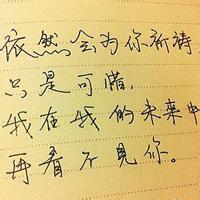 依然会为你祈祷,
只是可惜,
我在我的未来中
再看不見你。